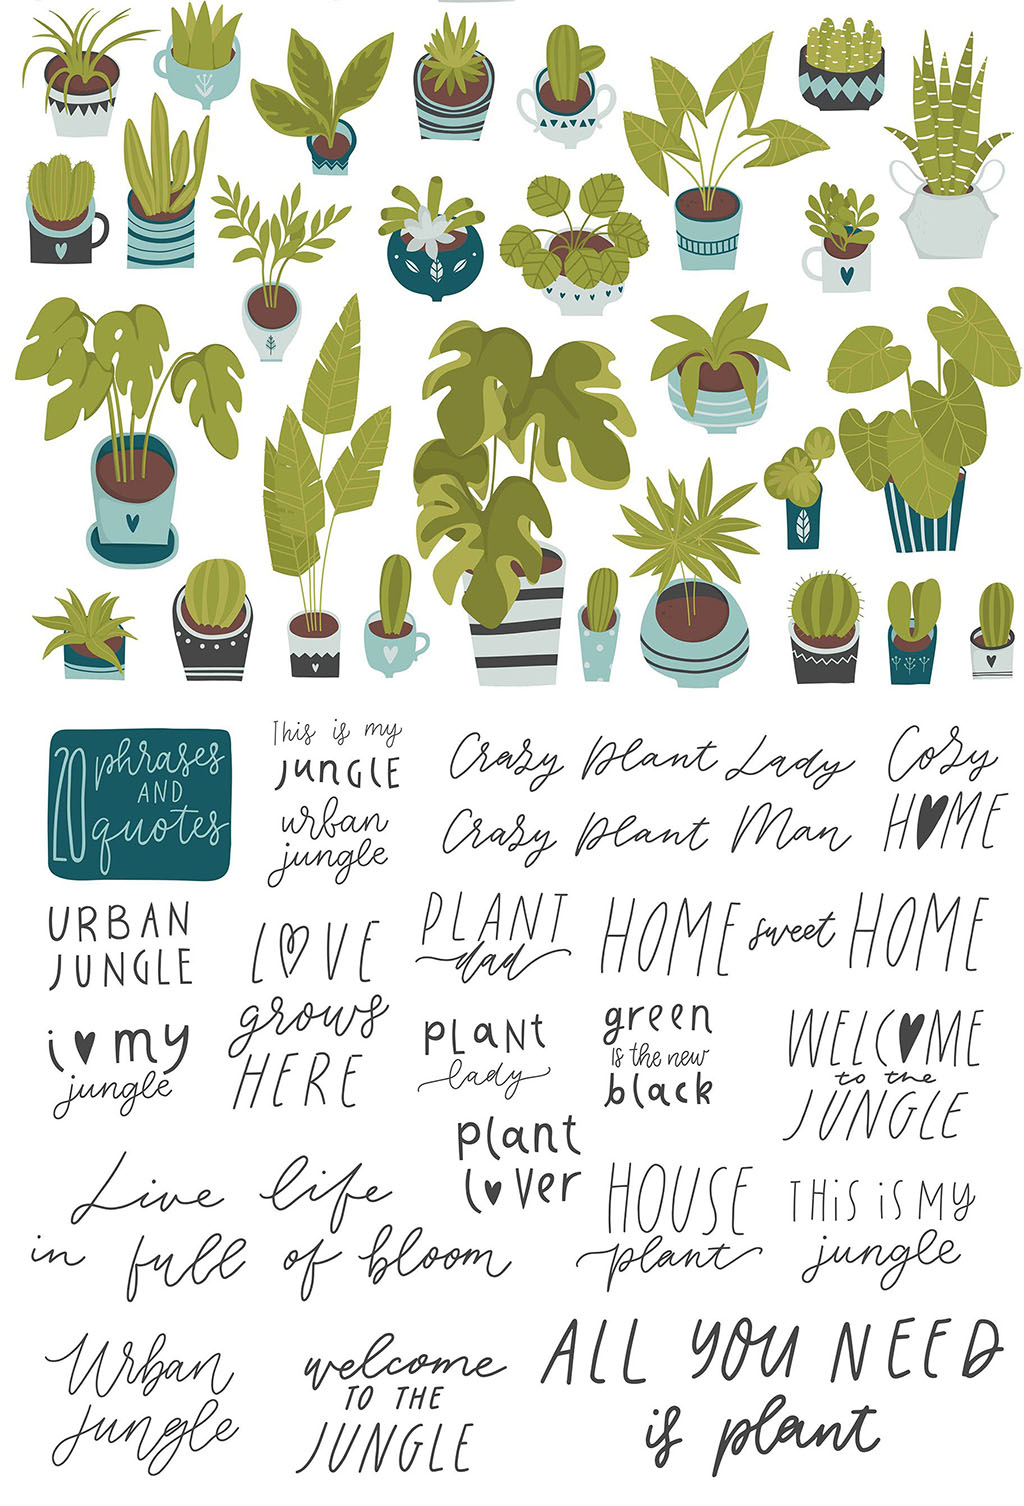 20 phrases
AND
quotes
This is my
JUNGLE
urban
jungle
Crazy plant Lady
Crazy plant Man
Cosy
HOME
URBAN
JUNGLE
LOVE
grows
HERE
PLANT
dad
HOME sweet HOME
i my
jungle
PLANT
lady
green
is the new
black
WELCOME
to the
JUNGLE
plant
lover
Live life
in full of bloom
HOUSE
plant
THis is MY
jungle
Urban
Jungle
welcome
TO THE
JUNGLE
ALL YOU NEED
is plant